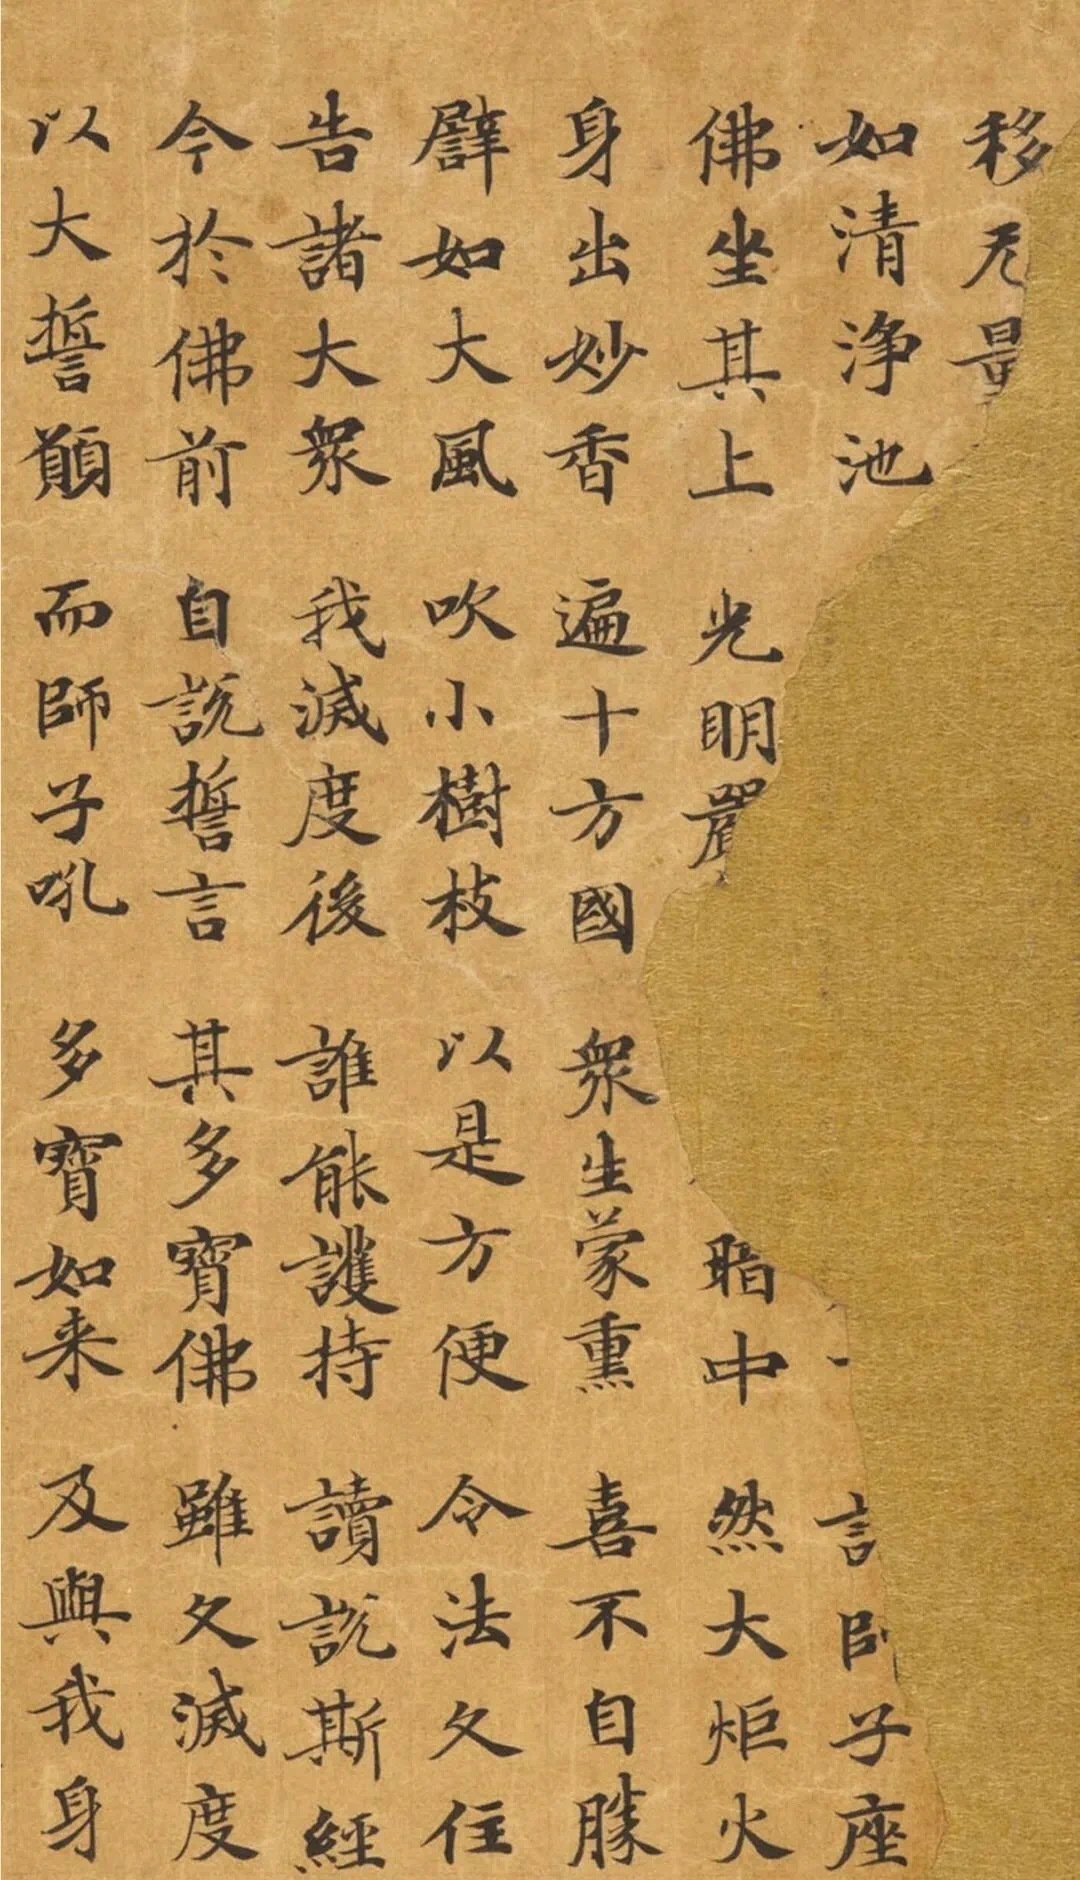 移无量
如清淨池 師子座
佛坐其上 光明嚴 暗中 然大炬火
身出妙香 遍十方國 眾生蒙熏 喜不自勝
譬如大風 吹小樹枝 以是方便 令法久住
告諸大眾 我滅度後 誰能護持 讀說斯經
今於佛前 自說誓言 其多寶佛 雖久滅度
以大誓願 而師子吼 多寶如来 及與我身